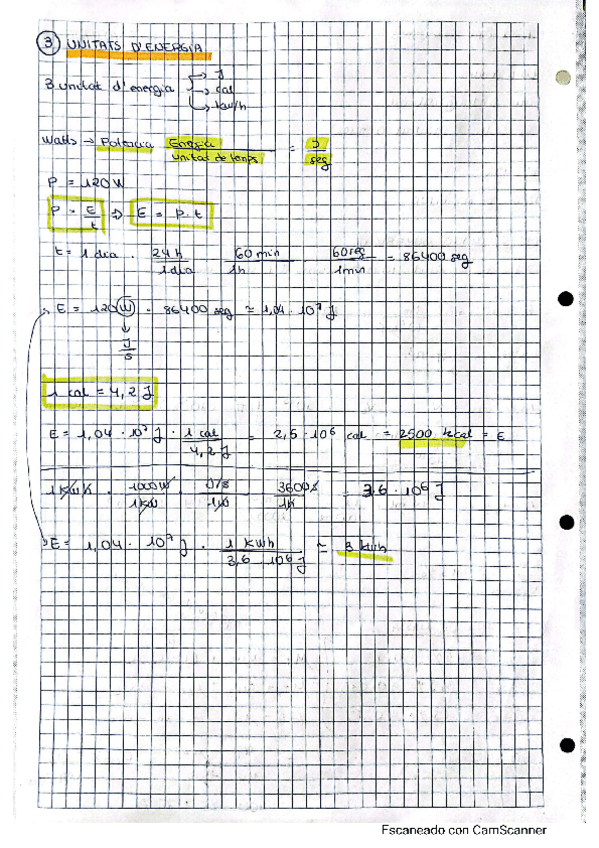 3 UNITATS D'ENERGIA
3 unitat d'energia → J
→ cal
→ kw/h
Watts → Potencia Energia / unitat de temps = J / seg
P = 120 W
P = E / t ⇒ E = P · t
t = 1 dia · 24 h / 1 dia 60 min / 1h 60 seg / 1 min = 86400 seg
E = 120 W · 86400 seg ≃ 1,04 · 10⁷ J
↓
J / s
1 cal = 4,2 J
E = 1,04 · 10⁷ J · 1 cal / 4,2 J = 2,5 · 10⁶ cal = 2500 kcal = E
1 KW h · 1000 W / 1 KW · J/s / 1 W 3600 s / 1 h = 3,6 · 10⁶ J
E = 1,04 · 10⁷ J · 1 kWh / 3,6 · 10⁶ J ≃ 3 kWh
Escaneado con CamScanner